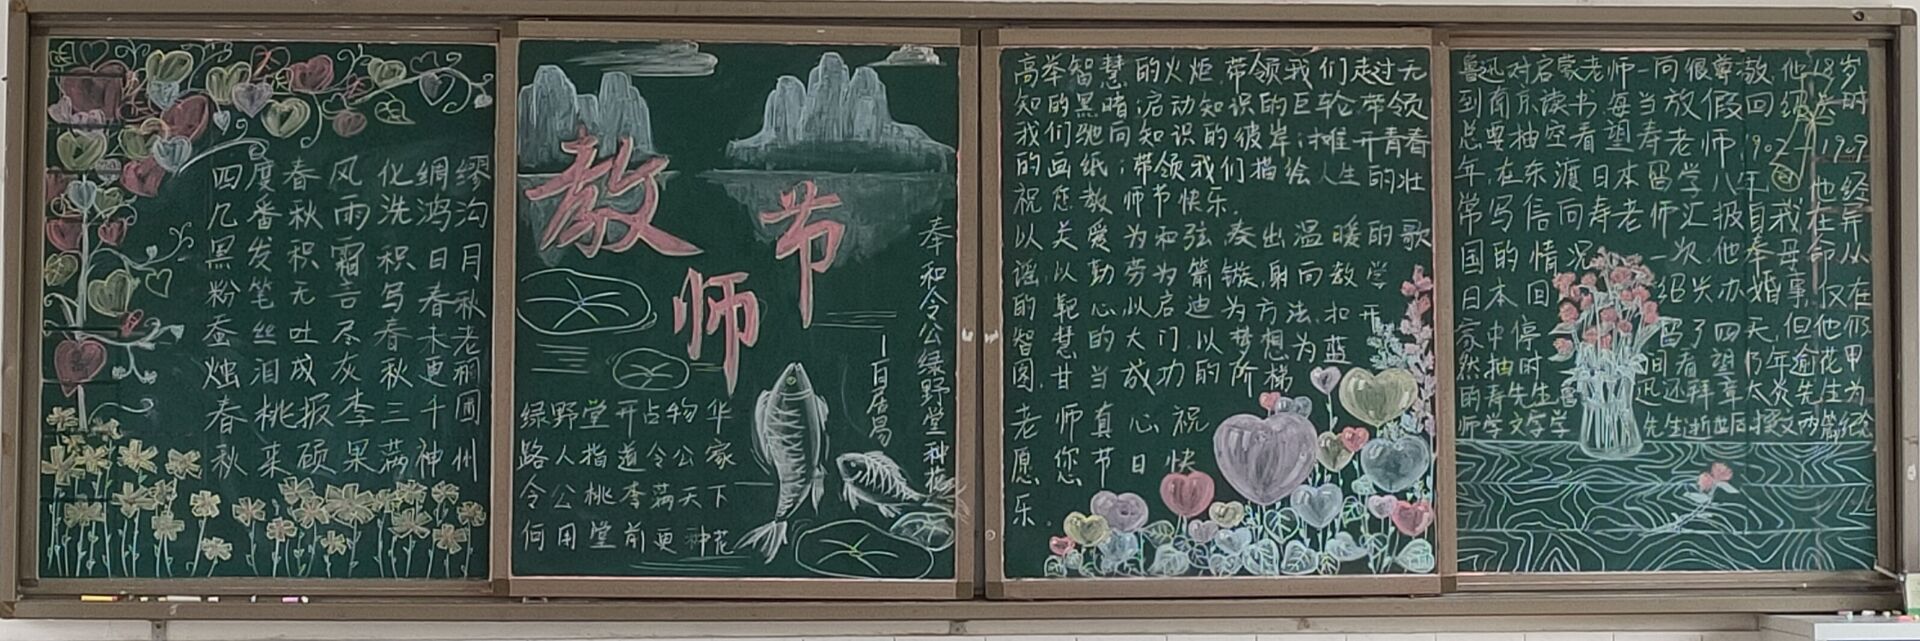 四度春风化绸缪
几番秋雨洗鸿沟
黑发积霜积日月
粉笔无言写春秋
蚕丝吐尽春未老
烛泪成灰秋更丽
春桃报李三千圃
秋来硕果满神州
教师节
奉和令公绿野堂种花
—白居易
绿野堂开占物华
路人指道令公家
令公桃李满天下
何用堂前更种花
高举智慧的火炬,带领我们走过无
知的黑暗;启动知识的巨轮,带领
我们驰向知识的彼岸;摊开青春
的画纸;带领我们描绘人生的壮
祝您教师节快乐.
以关爱为和弦,奏出温暖的歌
谣,以勤劳为箭镞,射向教学
的靶心,以启迪为方法,扣开
智慧的大门,以梦想为蓝
图,甘当成功的阶梯
老师真心祝
愿您节日快
乐。
鲁迅对启蒙老师一向很尊敬,他18岁
到南京读书,每当放假回绍兴时
总要抽空看望寿老师,1902—1909
年,在东渡日本留学八年间,他经
常写信向寿老师汇报自我在异
国的情况,一次,他奉母命从
日本回绍兴办婚事,仅在
家中停留了四天,但他仍
然抽时间看望乃年逾花甲
的寿先生,鲁迅还拜章太炎先生为
师学文字学,先生逝世后,撰文两篇纪念